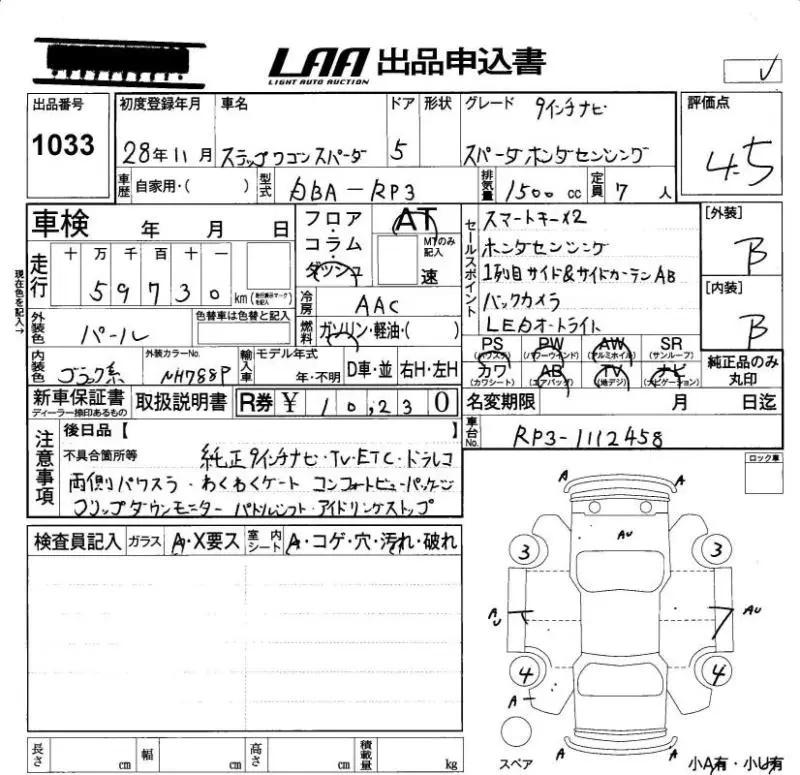 LAA 出品申込書
LIGHT AUTO AUCTION
出品番号 1033
初度登録年月 28年11月
車名 ステップワゴンスパーダ
ドア 5
形状
グレード 9インチナビ
スパーダホンダセンシング
評価点 4.5
車歴 自家用・( )
型式 DBA-RP3
排気量 1500 cc
定員 7 人
車検 年 月 日
フロア・コラム・ダッシュ
AT
MTのみ記入
速
セールスポイント
スマートキー×2
ホンダセンシング
1列目サイド&サイドカーテンAB
バックカメラ
LEDオートライト
[外装] B
[内装] B
現在色を記入→
走行 十 万 千 百 十 一
59730 km (走行表示マークを記入)
冷房 AAC
燃料 ガソリン・軽油・( )
外装色 パール
色替車は色替と記入
内装色 ブラック系
外装カラーNo. NH788P
輸入車 モデル年式 年・不明 D車・並 右H・左H
PS (パワステ) PW (パワーウインド) AW (アルミホイル) SR (サンルーフ)
カワ (カワシート) AB (エアバッグ) TV (地デジ) ナビ (ナビゲーション)
純正品のみ丸印
新車保証書 ディーラー捺印あるもの
取扱説明書
R券 ¥ 10,230
名変期限 月 日迄
車台No. RP3-1112458
注意事項
後日品【 】
不具合箇所等 純正9インチナビ・TV・ETC・ドラレコ
両側パワスラ・わくわくゲート コンフォートビューパッケージ
フリップダウンモニター パドルシフト・アイドリングストップ
ロック車
検査員記入 ガラス A・X要ス 室内シート A・コゲ・穴・汚れ・破れ
A
AU
3 3
AU AU
4 4
A
A A
スペア
小A有・小U有
長さ cm 幅 cm 高さ cm 積載量 kg